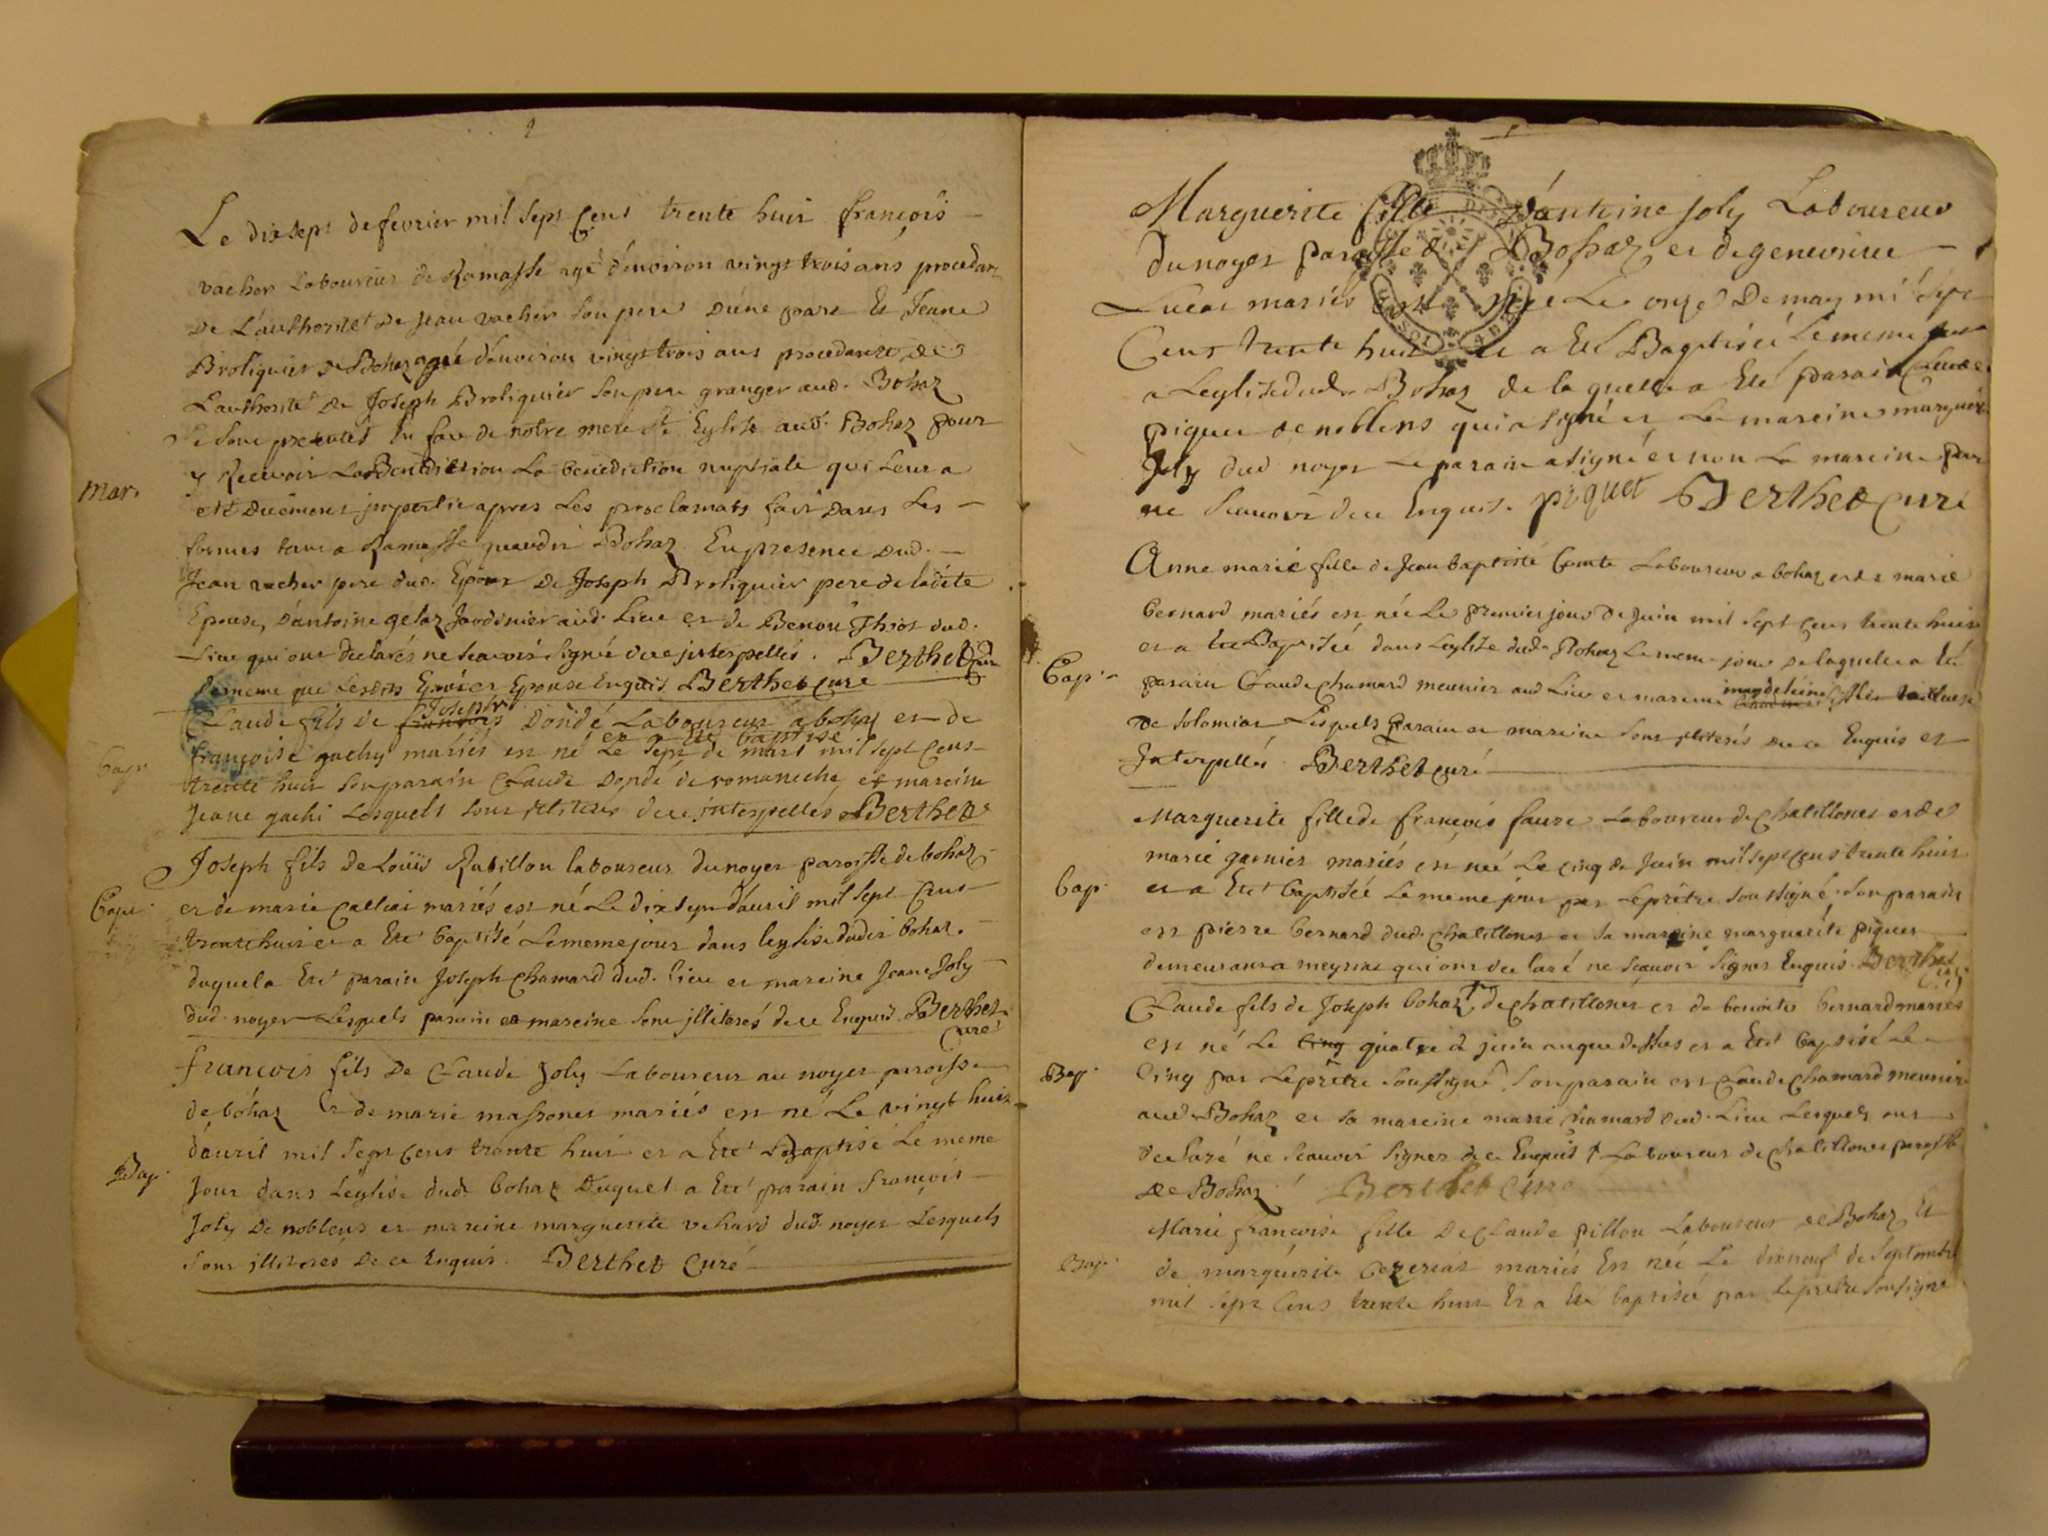 2
Le dix sept de fevrier mil sept Cens trente huit françois
vacher Laboureur de Ramasse agé d'environ vingt trois ans procedant
de L'authorité de Jean vacher son pere d'une part Et Jeane
Broliquier de Bohaz agée d'environ vingt trois ans procedante de
L'authorité de Joseph Broliquier son pere granger aud. Bohaz
Se sont presentés En face de notre mere Ste Eglise aud. Bohaz pour
mar.
y Recevoir La Benediction La benediction nuptiale qui Leur a
eté duëment impartie apres Les proclamats fait dans Les
formes tant a Ramasse quaudit Bohaz En presence dud.
Jean vacher pere dud. Epoux de Joseph Broliquier pere de ladite
Epouse, d'antoine gelaz Jardinier aud. Lieu et de Benoit Thiot dud.
Lieu qui ont declarés ne scavoir signé de ce interpellés. Berthet Curé
de meme que Lesdits Epoux et Epouse Enquis Berthet Curé
Joseph
Claude fils de françois Dondé Laboureur a bohaz et de
et a été baptisé
Bapt.
françoise gachy mariés est né Le sept de mars mil sept Cens
trente huit son parain Claude Dondé de romaneche et mareine
Jeane gachi Lesquels sont illiteres de ce interpellés Berthet
Joseph fils de Loüis Rubillon laboureur du noyer paroisse de bohaz
Bapt.
et de marie Calliat mariés est né Le dix sept d'avril mil sept Cens
trente huit et a Eté baptisé Le meme jour dans leglise dudit bohaz.
duquel a Eté parain Joseph Chamard dud. lieu et mareine Jeane Joly
dud. noyer Lesquels parain et mareine sont illiterés de ce Enquis Berthet
Curé
francois fils de Claude Joly Laboureur au noyer paroisse
de bohaz Et de marie massonet mariés est né Le vingt huit
d'avril mil sept Cens trente huit et a Eté Baptisé Le meme
Bap.
Jour dans L'eglise dud. bohaz Duquel a Eté parain françois
Joly de noblens et mareine marguerite vehard dud. noyer Lesquels
sont illiterés de ce Enquis. Berthet Curé
Marguerite fille d'antoine Joly Laboureur
du noyer paroisse de Bohaz et de genevieve
Lucat mariés est née Le onze de may mil sept
Cens trente huit et a Eté Baptisée Le meme jour
a Leglise dud. Bohaz de la quelle a Eté parain Claude
piquet de noblens qui a signé et La mareine marguerite
Joly dud noyer Le parain a signé et non La mareine pour
ne scavoir de ce Enquis. piquet Berthet Curé
Anne marie fille de Jean baptiste Comte Laboureur a bohaz et de marie
bernard mariés est née Le premier jour de Juin mil sept cens trente huit
et a Eté Baptisée dans Leglise dud. Bohaz Le meme jour de laquelle a Eté
Bap.
parain Claude Chamard meunier aud Lieu et mareine mandeleine
de Solomiat Lesquels parain et mareine sont illiterés de ce Enquis et
Interpellés. Berthet curé
Marguerite fille de françois faure Laboureur de Chatillonet et de
marie garnier mariés est née Le cinq de Juin mil sept cens trente huit
Bap.
et a Eté baptisée Le meme jour par Le prêtre soussigné, son parain
est pierre bernard dud. Chatillonet et sa mareine marguerite piquet
demeurant a meyriat qui ont declaré ne scavoir signer Enquis. Berthet
Curé
Claude fils de Joseph bohaz + de Chatillonet et de benoite bernard mariés
est né Le cinq quatre de juin an que dessus et a Eté baptisé Le
Bap.
cinq par Le prêtre soussigné, son parain est Claude Chamard meunier
aud. Bohaz et sa mareine marie Chamard dud. Lieu Lesquels ont
declaré ne scavoir signer de ce Enquis + Laboureur de Chatillonet paroisse
de Bohaz. Berthet Curé
Marie françoise fille de Claude pillon Laboureur de Bohaz Et
Bap.
de marguerite Cezeriat mariés Est née Le dixneuf de septembre
mil sept Cens trente huit Et a Eté baptisée par Le prêtre soussigné